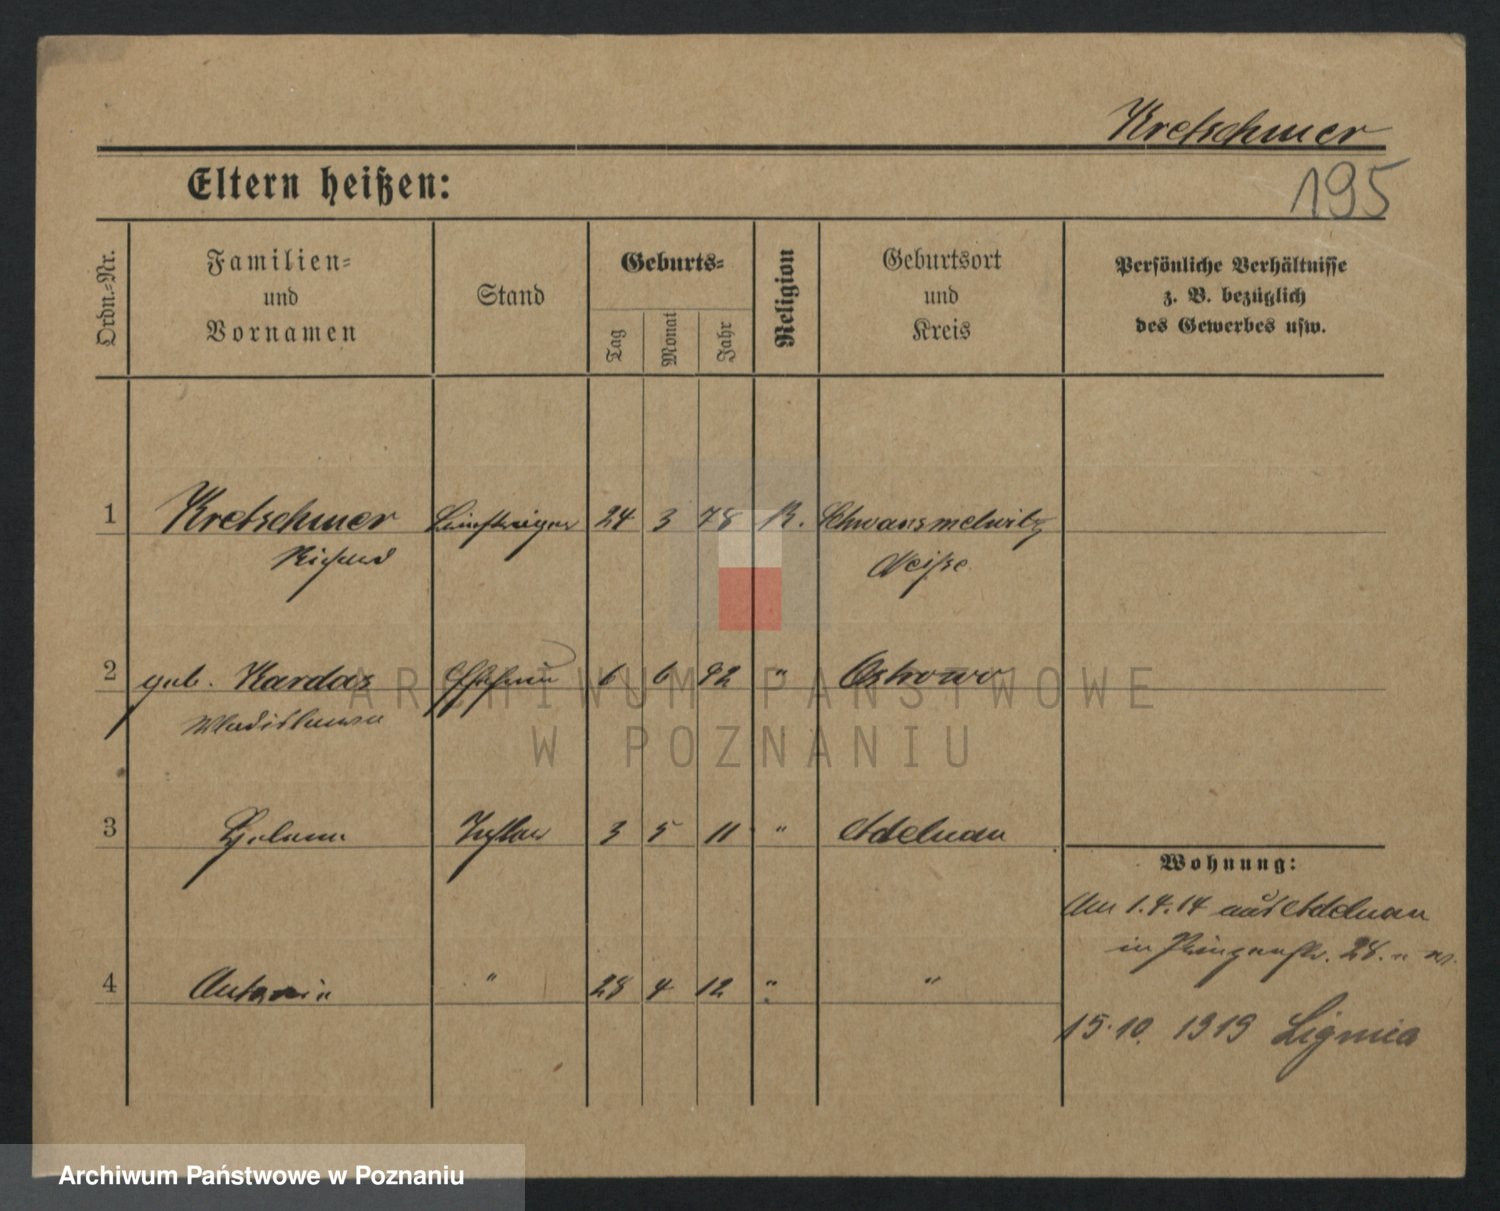 Kretschmer
195
Eltern heißen:
Ordn.-Nr.
Familien- und Vornamen
Stand
Geburts-
Tag
Monat
Jahr
Religion
Geburtsort und Kreis
Persönliche Verhältnisse
z. B. bezüglich
des Gewerbes usw.
1 Kretschmer 24 3 78 K. Schwansmelwitz
Richard Neiße
2 geb. Kardas Ehefrau 6 6 92 " Ostrowo
Wladislawa
3 Helene Tochter 3 5 11 " Adelnau
4 " 28 4 12 " "
Wohnung:
Am 1.4.14 aus Adelnau
in Prinzenstr. 28.
15.10. 1919
ARCHIWUM PAŃSTWOWE
W POZNANIU
Archiwum Państwowe w Poznaniu